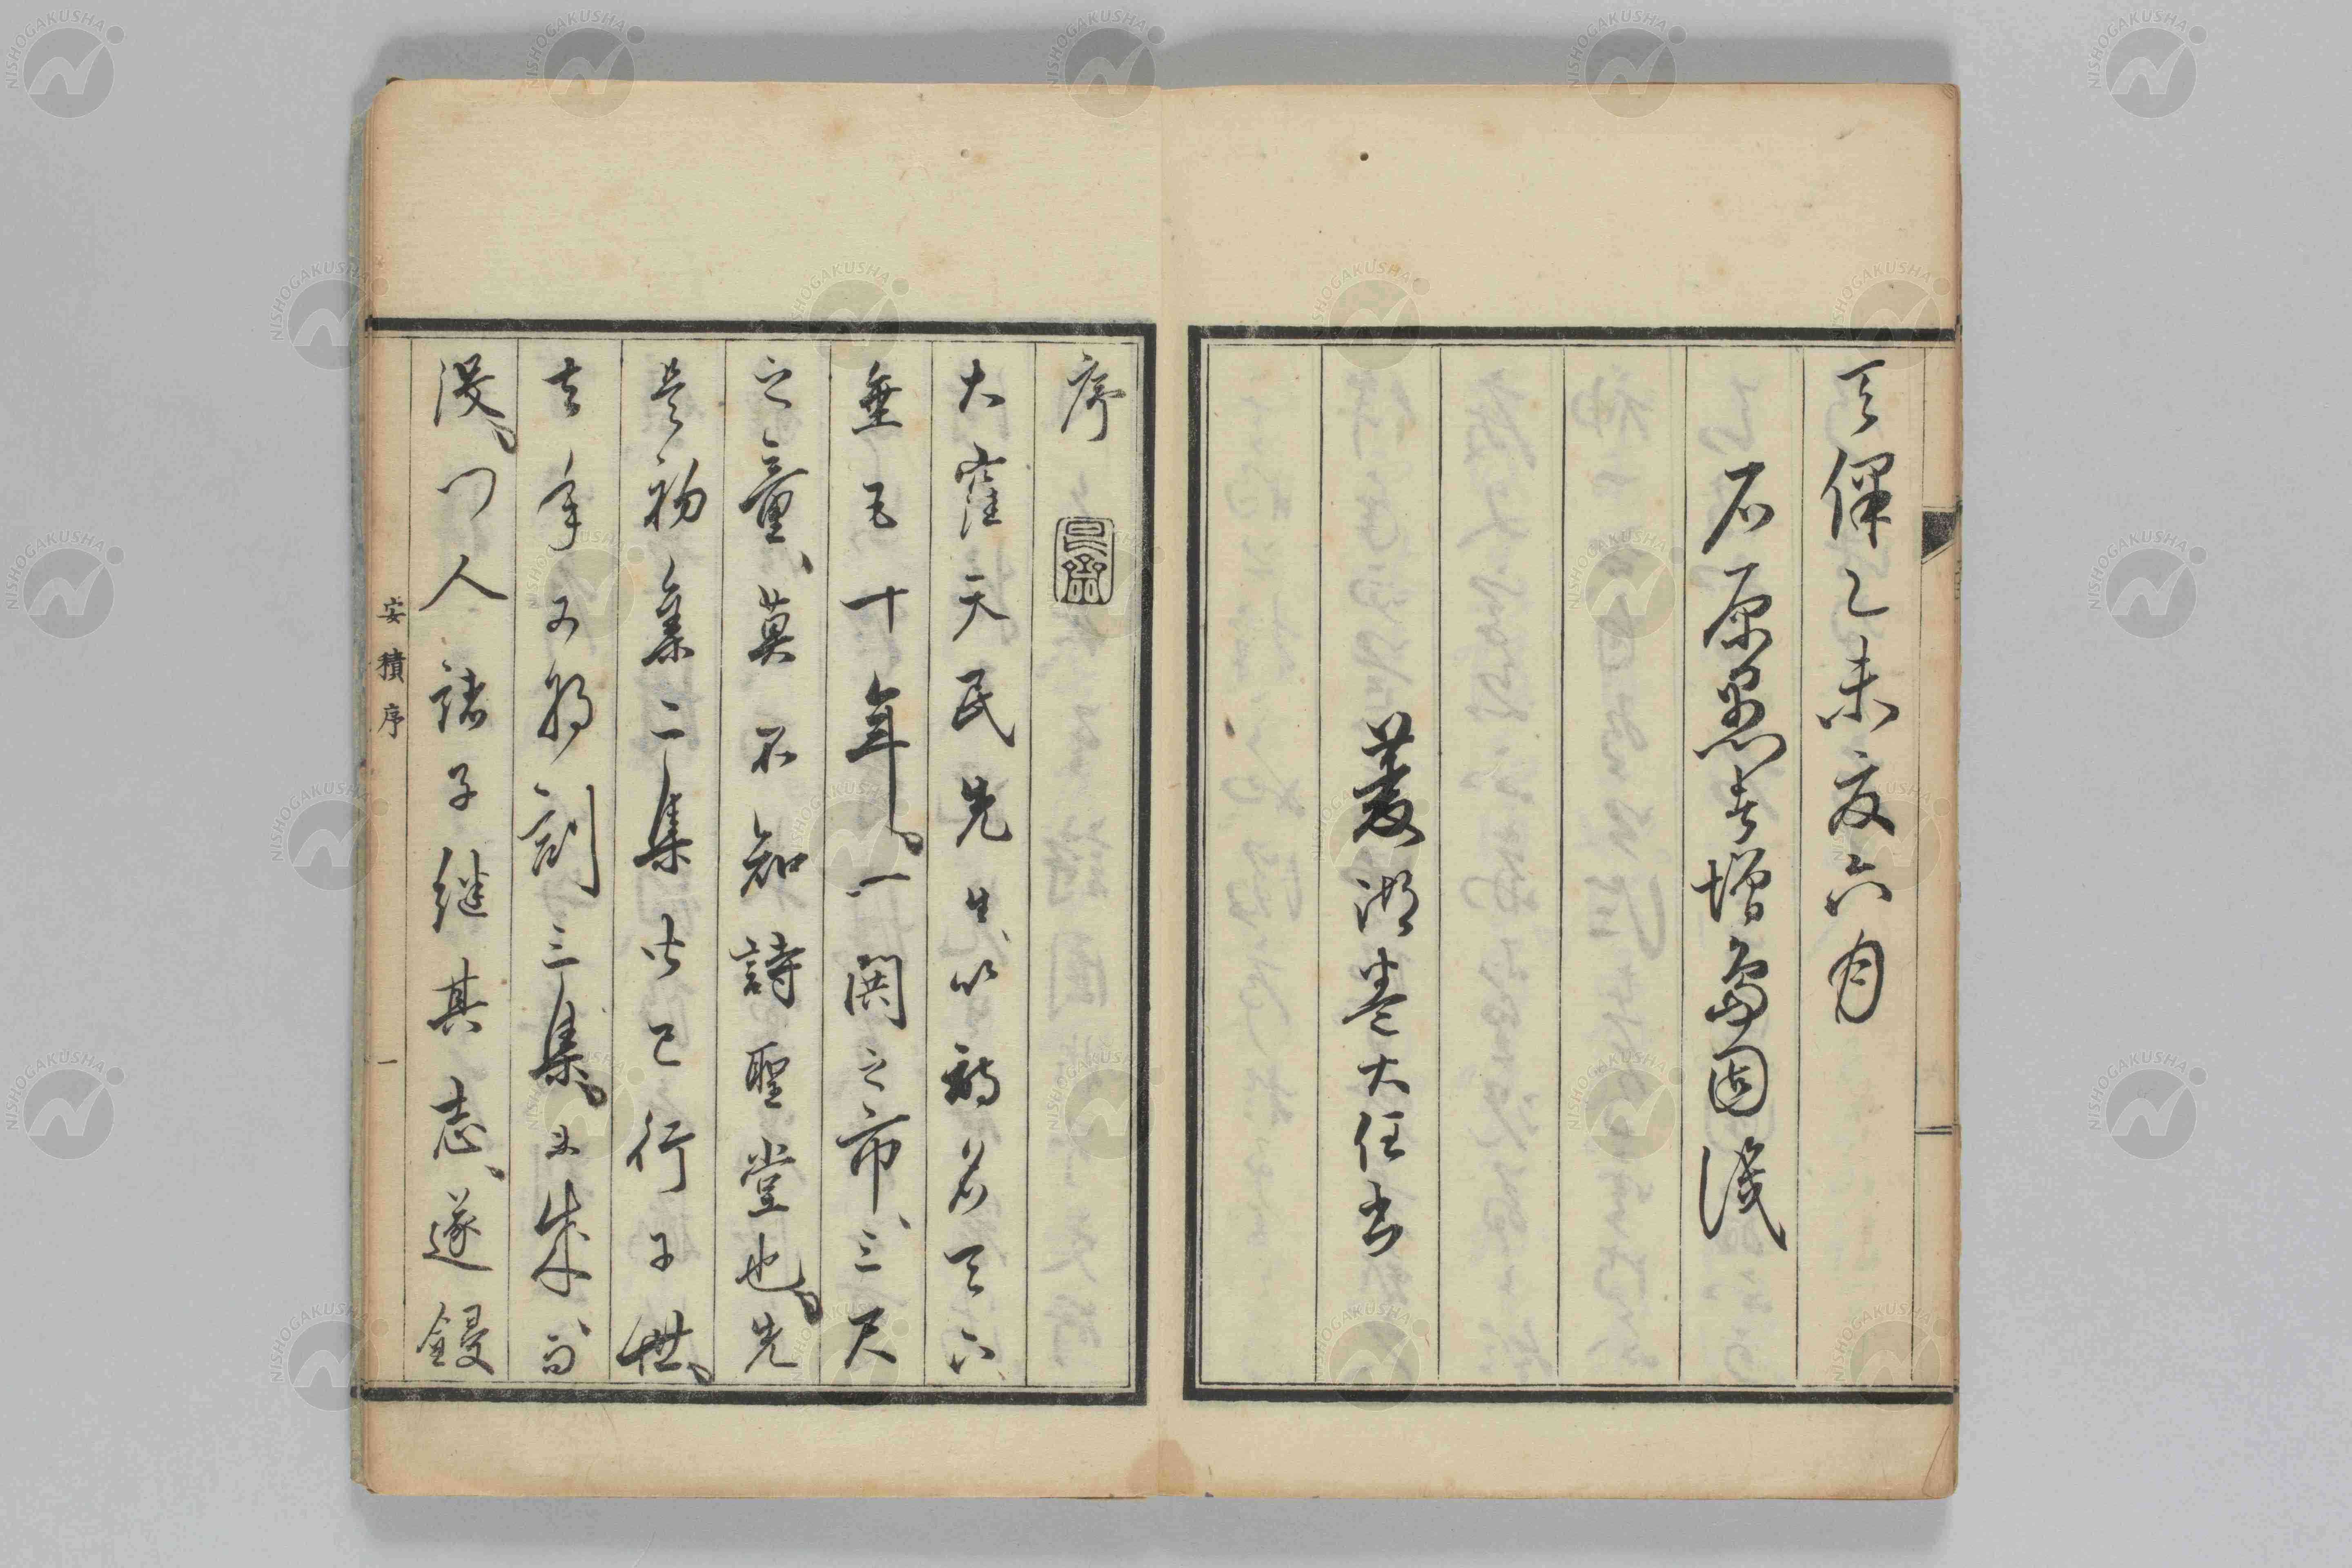 天保乙未夏六月
石原愚者増島固識
菱湖巻大任書
序
艮齋
大窪天民先生、以詩名天下、
垂五十年。一閧之市、三尺
之童、莫不知詩聖堂也。先
是初集二集皆已行于世。
去年又將刻三集。未成、而
沒。門人諸子継其志、遂鋟
安積序 一
NISHOGAKUSHA